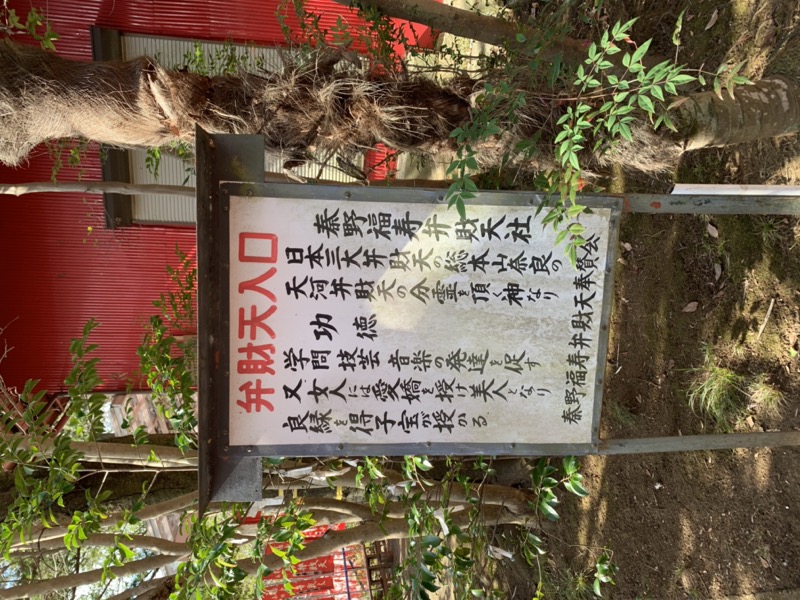 弁財天入口
秦野福寿弁財天社
日本三大弁財天の総本山奈良の
天河弁財天の分霊を頂く神なり
功徳
学問技芸音楽の発達を促す
又女人には愛嬌を授け美人となり
良縁を得子宝が授かる
秦野福寿弁財天奉賛会